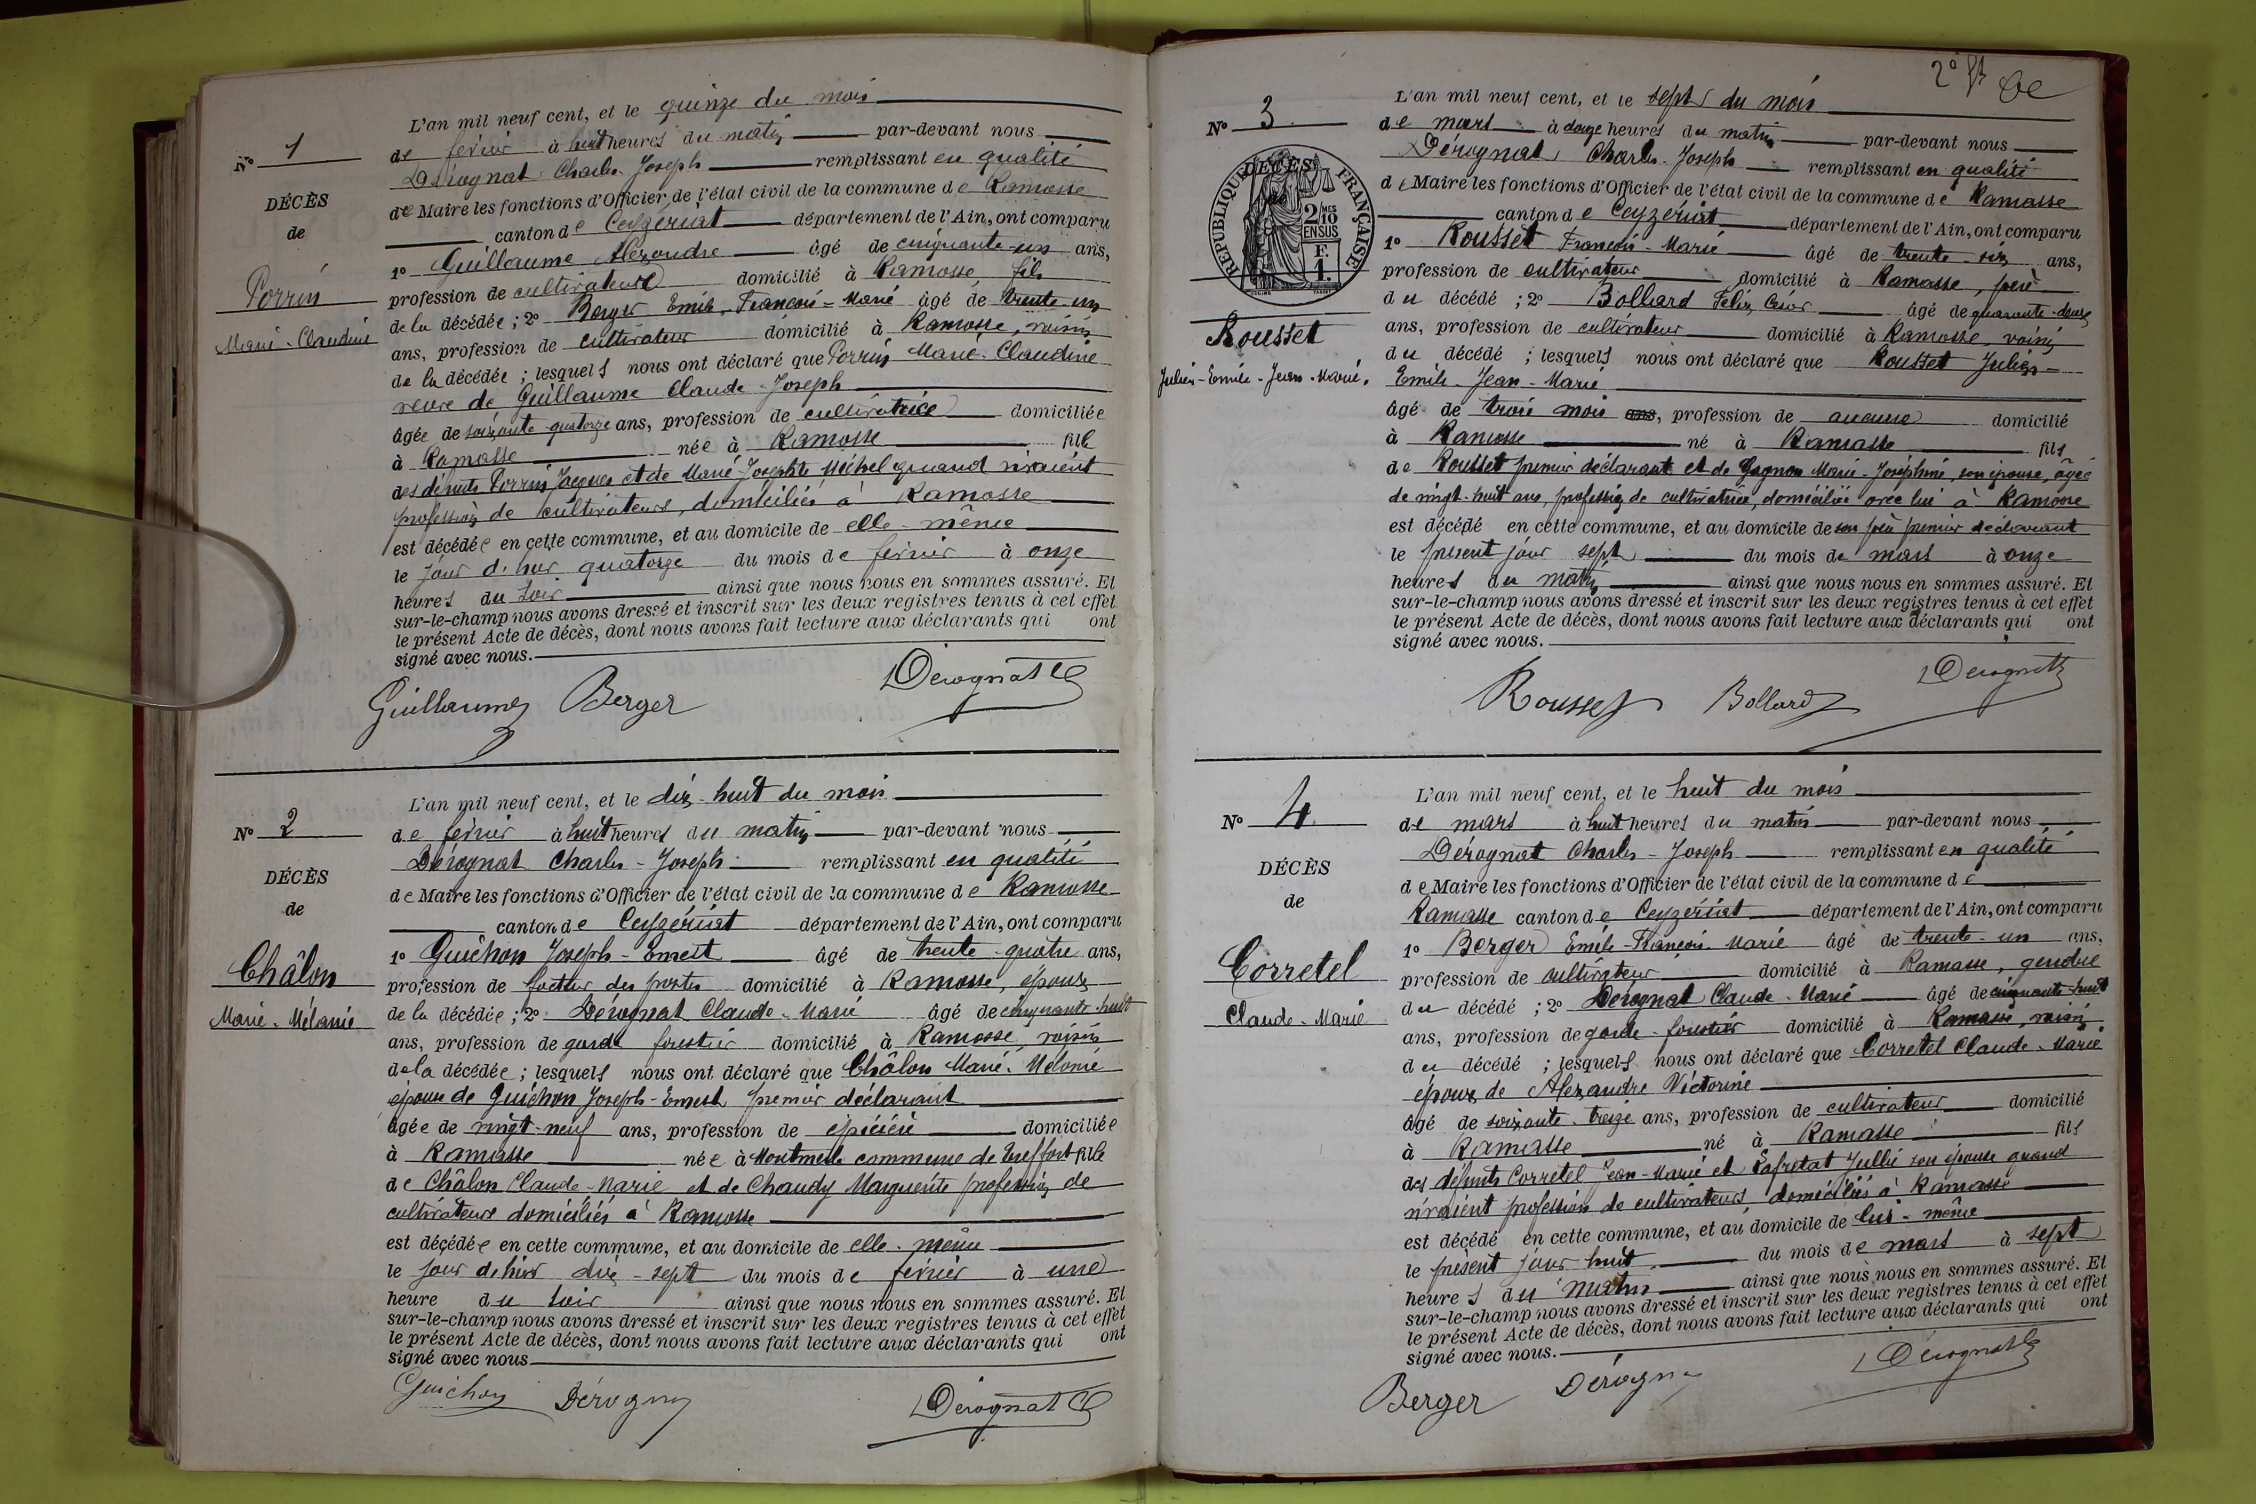 N° 1
DÉCÈS
de
Perrin
Marie-Claudine
L'an mil neuf cent, et le quinze du mois
de février à huit heures du matin par-devant nous
Dérognat Charles-Joseph remplissant en qualité
de Maire les fonctions d'Officier de l'état civil de la commune de Ramasse
canton de Ceyzériat département de l'Ain, ont comparu
1° Guillaume Alexandre âgé de cinquante-un ans,
profession de cultivateur domicilié à Ramasse fils
de la décédée ; 2° Berger Emile-François-Marie âgé de trente un
ans, profession de cultivateur domicilié à Ramasse, voisin
de la décédée ; lesquels nous ont déclaré que Perrin Marie-Claudine
veuve de Guillaume Claude-Joseph
âgée de soixante-quatorze ans, profession de cultivatrice domiciliée
à Ramasse née à Ramasse fille
des défunts Perrin Jacques et de Marie-Josephte Michel quand vivaient
profession de cultivateurs, domiciliés à Ramasse
est décédée en cette commune, et au domicile de elle-même
le jour d'hier quatorze du mois de février à onze
heures du soir ainsi que nous nous en sommes assuré. Et
sur-le-champ nous avons dressé et inscrit sur les deux registres tenus à cet effet
le présent Acte de décès, dont nous avons fait lecture aux déclarants qui ont
signé avec nous.
Guillaume Berger Dérognat
N° 2
DÉCÈS
de
Châlon
Marie-Mélanie
L'an mil neuf cent, et le dix-huit du mois
de février à huit heures du matin par-devant nous
Dérognat Charles-Joseph remplissant en qualité
de Maire les fonctions d'Officier de l'état civil de la commune de Ramasse
canton de Ceyzériat département de l'Ain, ont comparu
1° Guichon Joseph-Ernest âgé de trente-quatre ans,
profession de facteur des postes domicilié à Ramasse, époux
de la décédée ; 2° Dérognat Claude-Marie âgé de cinquante-huit
ans, profession de garde forestier domicilié à Ramasse, voisin
de la décédée ; lesquels nous ont déclaré que Châlon Marie-Mélanie
épouse de Guichon Joseph-Ernest premier déclarant
âgée de vingt-neuf ans, profession de épicière domiciliée
à Ramasse née à Montmerle commune de Treffort fille
de Châlon Claude-Marie et de Chaudy Marguerite profession de
cultivateurs domiciliés à Ramasse
est décédée en cette commune, et au domicile de elle-même
le jour dehier dix-sept du mois de février à une
heure du soir ainsi que nous nous en sommes assuré. Et
sur-le-champ nous avons dressé et inscrit sur les deux registres tenus à cet effet
le présent Acte de décès, dont nous avons fait lecture aux déclarants qui ont
signé avec nous
Guichon Dérogna Dérognat
2°
N° 3
DÉCÈS
de
RÉPUBLIQUE FRANÇAISE
2/10 MES
EN SUS
F.
1.
Rousset
Julien-Emile-Jean-Marie.
L'an mil neuf cent, et le sept du mois
de mars à douze heures du matin par-devant nous
Dérognat Charles-Joseph remplissant en qualité
de Maire les fonctions d'Officier de l'état civil de la commune de Ramasse
canton de Ceyzériat département de l'Ain, ont comparu
1° Rousset François-Marie âgé de trente-six ans,
profession de cultivateur domicilié à Ramasse, père
du décédé ; 2° Bollard Félix César âgé de quarante-deux
ans, profession de cultivateur domicilié à Ramasse, voisin
du décédé ; lesquels nous ont déclaré que Rousset Julien-
Emile-Jean-Marie
âgé de trois mois ans, profession de aucune domicilié
à Ramasse né à Ramasse fils
de Rousset premier déclarant et de Gagnon Marie-Joséphine, son épouse, âgée
de vingt-huit ans, profession de cultivatrice, domiciliée avec lui à Ramasse
est décédé en cette commune, et au domicile de son père premier déclarant
le présent jour sept du mois de mars à onze
heures du matin ainsi que nous nous en sommes assuré. Et
sur-le-champ nous avons dressé et inscrit sur les deux registres tenus à cet effet
le présent Acte de décès, dont nous avons fait lecture aux déclarants qui ont
signé avec nous.
Rousset Bollard Dérognat
N° 4
DÉCÈS
de
Corretel
Claude-Marie
L'an mil neuf cent, et le huit du mois
de mars à huit heures du matin par-devant nous
Dérognat Charles-Joseph remplissant en qualité
de Maire les fonctions d'Officier de l'état civil de la commune de
Ramasse canton de Ceyzériat département de l'Ain, ont comparu
1° Berger Emile-François-Marie âgé de trente-un ans,
profession de cultivateur domicilié à Ramasse, gendre
du décédé ; 2° Dérognat Claude-Marie âgé de cinquante-huit
ans, profession de garde-forestier domicilié à Ramasse, voisin
du décédé ; lesquels nous ont déclaré que Corretel Claude-Marie
époux de Alexandre Victorine
âgé de soixante-treize ans, profession de cultivateur domicilié
à Ramasse né à Ramasse fils
des défunts Corretel Jean-Marie et Julie son épouse quand
vivaient profession de cultivateurs domiciliés à Ramasse
est décédé en cette commune, et au domicile de lui-même
le présent jour huit du mois de mars à sept
heures du matin ainsi que nous nous en sommes assuré. Et
sur-le-champ nous avons dressé et inscrit sur les deux registres tenus à cet effet
le présent Acte de décès, dont nous avons fait lecture aux déclarants qui ont
signé avec nous.
Berger Dérogna Dérognat